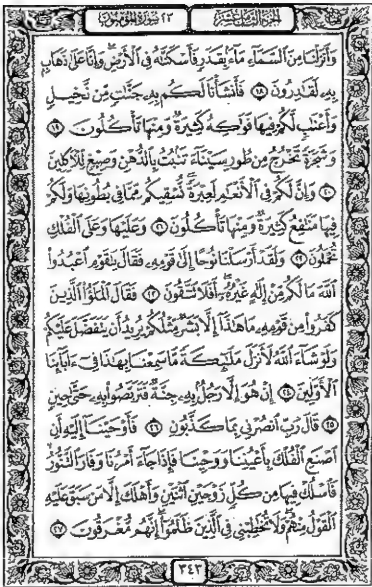 الجزء الثامن عشر
٢٣ سورة المؤمنون
وَأَنزَلْنَا مِنَ ٱلسَّمَآءِ مَآءًۢ بِقَدَرٍ فَأَسْكَنَّٰهُ فِى ٱلْأَرْضِ ۖ وَإِنَّا عَلَىٰ ذَهَابٍۭ
بِهِۦ لَقَٰدِرُونَ ١٨ فَأَنشَأْنَا لَكُم بِهِۦ جَنَّٰتٍ مِّن نَّخِيلٍ
وَأَعْنَٰبٍ لَّكُمْ فِيهَا فَوَٰكِهُ كَثِيرَةٌ وَمِنْهَا تَأْكُلُونَ ١٩
وَشَجَرَةً تَخْرُجُ مِن طُورِ سَيْنَآءَ تَنۢبُتُ بِٱلدُّهْنِ وَصِبْغٍ لِّلْءَاكِلِينَ
٢٠ وَإِنَّ لَكُمْ فِى ٱلْأَنْعَٰمِ لَعِبْرَةً ۖ نُّسْقِيكُم مِّمَّا فِى بُطُونِهَا وَلَكُمْ
فِيهَا مَنَٰفِعُ كَثِيرَةٌ وَمِنْهَا تَأْكُلُونَ ٢١ وَعَلَيْهَا وَعَلَى ٱلْفُلْكِ
تُحْمَلُونَ ٢٢ وَلَقَدْ أَرْسَلْنَا نُوحًا إِلَىٰ قَوْمِهِۦ فَقَالَ يَٰقَوْمِ ٱعْبُدُوا۟
ٱللَّهَ مَا لَكُم مِّنْ إِلَٰهٍ غَيْرُهُۥٓ ۖ أَفَلَا تَتَّقُونَ ٢٣ فَقَالَ ٱلْمَلَؤُا۟ ٱلَّذِينَ
كَفَرُوا۟ مِن قَوْمِهِۦ مَا هَٰذَآ إِلَّا بَشَرٌ مِّثْلُكُمْ يُرِيدُ أَن يَتَفَضَّلَ عَلَيْكُمْ
وَلَوْ شَآءَ ٱللَّهُ لَأَنزَلَ مَلَٰٓئِكَةً مَّا سَمِعْنَا بِهَٰذَا فِىٓ ءَابَآئِنَا
ٱلْأَوَّلِينَ ٢٤ إِنْ هُوَ إِلَّا رَجُلٌۢ بِهِۦ جِنَّةٌ فَتَرَبَّصُوا۟ بِهِۦ حَتَّىٰ حِينٍ
٢٥ قَالَ رَبِّ ٱنصُرْنِى بِمَا كَذَّبُونِ ٢٦ فَأَوْحَيْنَآ إِلَيْهِ أَنِ
ٱصْنَعِ ٱلْفُلْكَ بِأَعْيُنِنَا وَوَحْيِنَا فَإِذَا جَآءَ أَمْرُنَا وَفَارَ ٱلتَّنُّورُ ۙ
فَٱسْلُكْ فِيهَا مِن كُلٍّ زَوْجَيْنِ ٱثْنَيْنِ وَأَهْلَكَ إِلَّا مَن سَبَقَ عَلَيْهِ
ٱلْقَوْلُ مِنْهُمْ ۖ وَلَا تُخَٰطِبْنِى فِى ٱلَّذِينَ ظَلَمُوٓا۟ ۖ إِنَّهُم مُّغْرَقُونَ ٢٧
٣٤٣